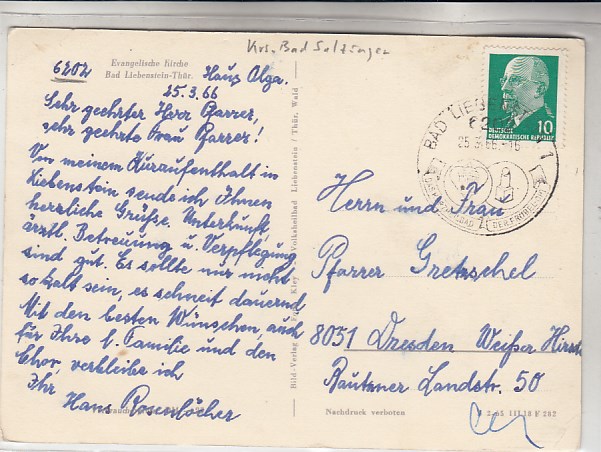 Krs. Bad Salzungen
Evangelische Kirche
Bad Liebenstein-Thür.
6202
Haus Olga.
25.3.66
Sehr geehrter Herr Pfarrer,
sehr geehrte Frau Pfarrer!
Von meinem Kuraufenthalt in
Liebenstein sende ich Ihnen
herzliche Grüße. Unterkunft,
ärztl. Betreuung u. Verpflegung
sind gut. Es sollte nur nicht
so kalt sein, es schneit dauernd.
Mit den besten Wünschen, auch
für Ihre l. Familie und den
Chor, verbleibe ich
Ihr
Hans Rosenlöcher
Volksheilbad Liebenstein / Thür. Wald
Bild-Verlag
DEUTSCHE
DEMOKRATISCHE REPUBLIK
10
BAD LIEBEN
25.3.66.-16
1
Herrn und Frau
Pfarrer Gretzschel
8051 Dresden Weißer Hirsch
Bautzner Landstr. 50
Nachdruck verboten
III 18 F 282